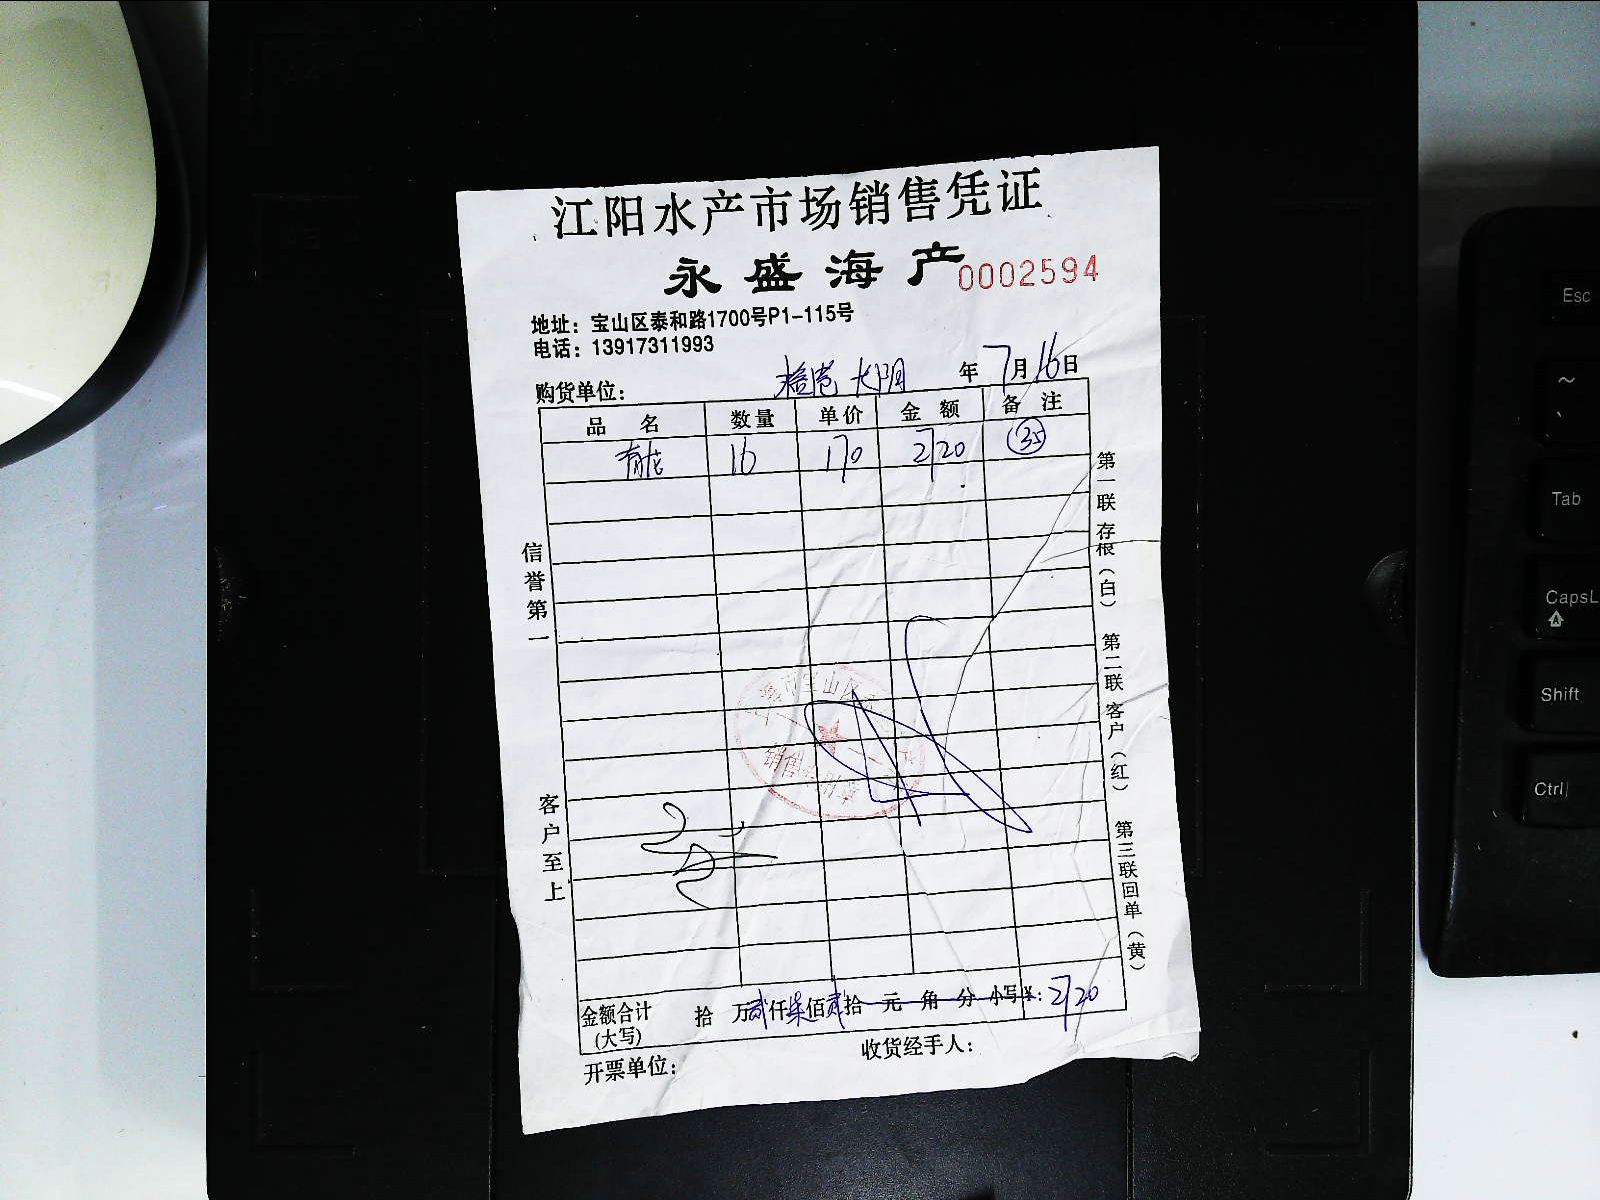 江阳水产市场销售凭证
永盛海产 0002594
地址：宝山区泰和路1700号P1-115号
电话：13917311993
购货单位： 年7月16日
品 名 数量 单价 金 额 备 注
16 170 2720 35
信誉第一
客户至上
第一联 存根（白） 第二联 客户（红） 第三联 回单（黄）
宝山区
销售
金额合计（大写） 拾 万贰仟柒佰贰拾 元 角 分 小写¥：2720
开票单位： 收货经手人：
Esc
~
、
Tab
CapsL
Shift
Ctrl